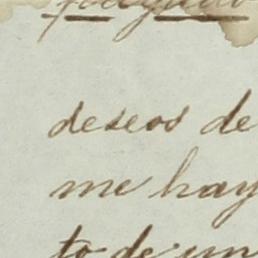 deseos de
me hay
to de un